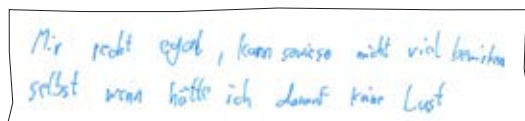 Mir recht egal, kann sowieso nicht viel bewirken
selbst wenn hätte ich darauf keine Lust